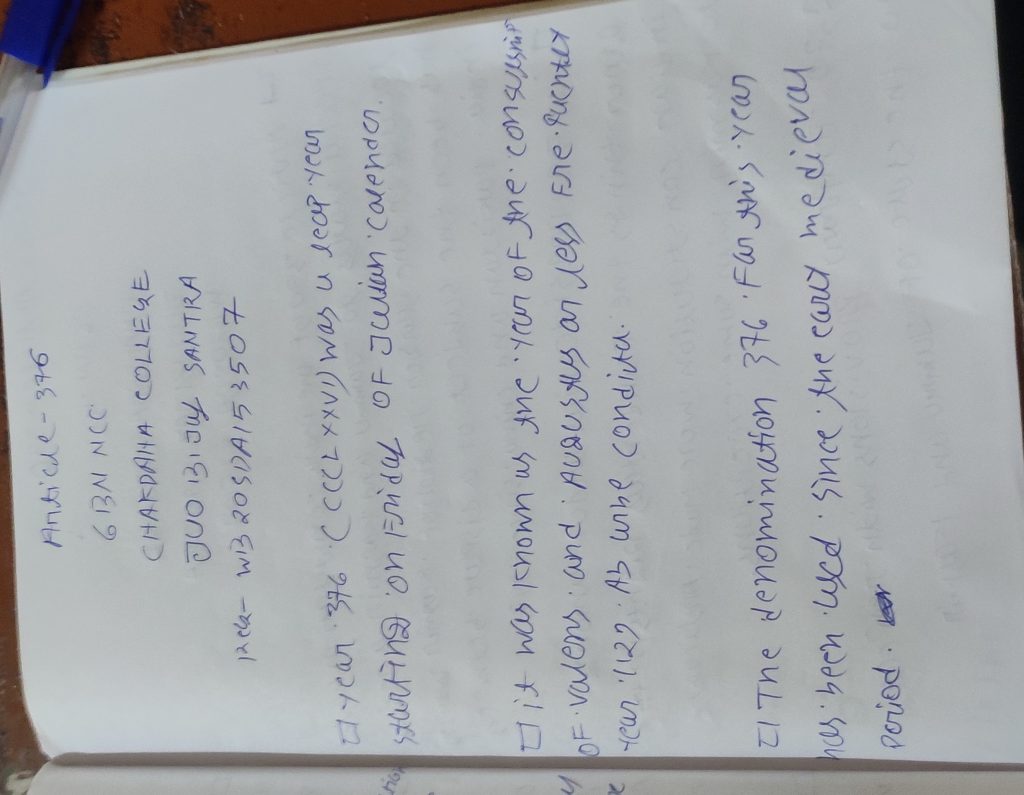 Article - 376
6 BN NCC
CHAKDAHA COLLEGE
JUO Bijoy SANTRA
WB20SDA153507
□ year 376 (CCCLXXVI) was a leap year
starting on Friday OF Julian calender.
□ it was known as the year OF the consulship
OF valens and Augustus or less Fre
year 1129 Ab urbe condita.
□ The denomination 376 For this year
has been used since the early medieval
period.